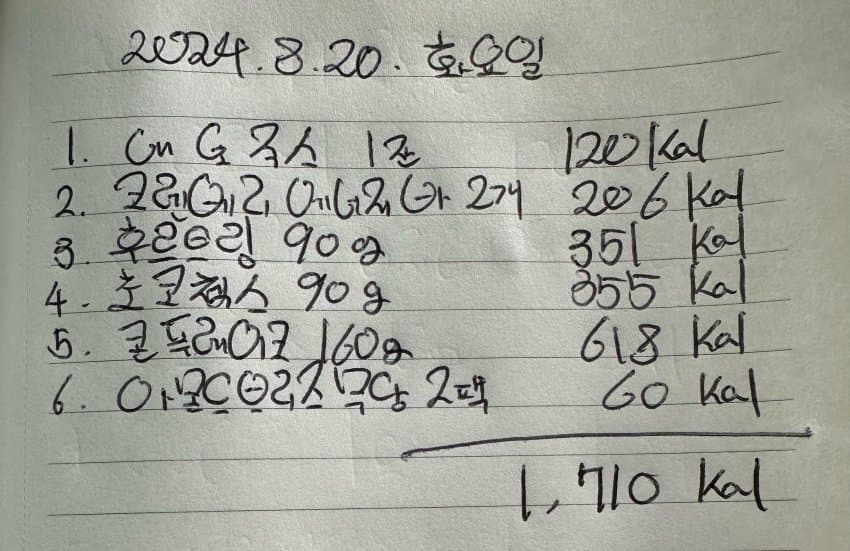 2024.8.20. 화요일
1. 1잔 120 Kal
2. 크랜베리 에너지바 2개 206 Kal
3. 후르트링 90g 351 Kal
4. 초코첵스 90g 355 Kal
5. 콘프레이크 160g 618 Kal
6. 아몬드브리즈 무당 2팩 60 Kal
1,710 Kal